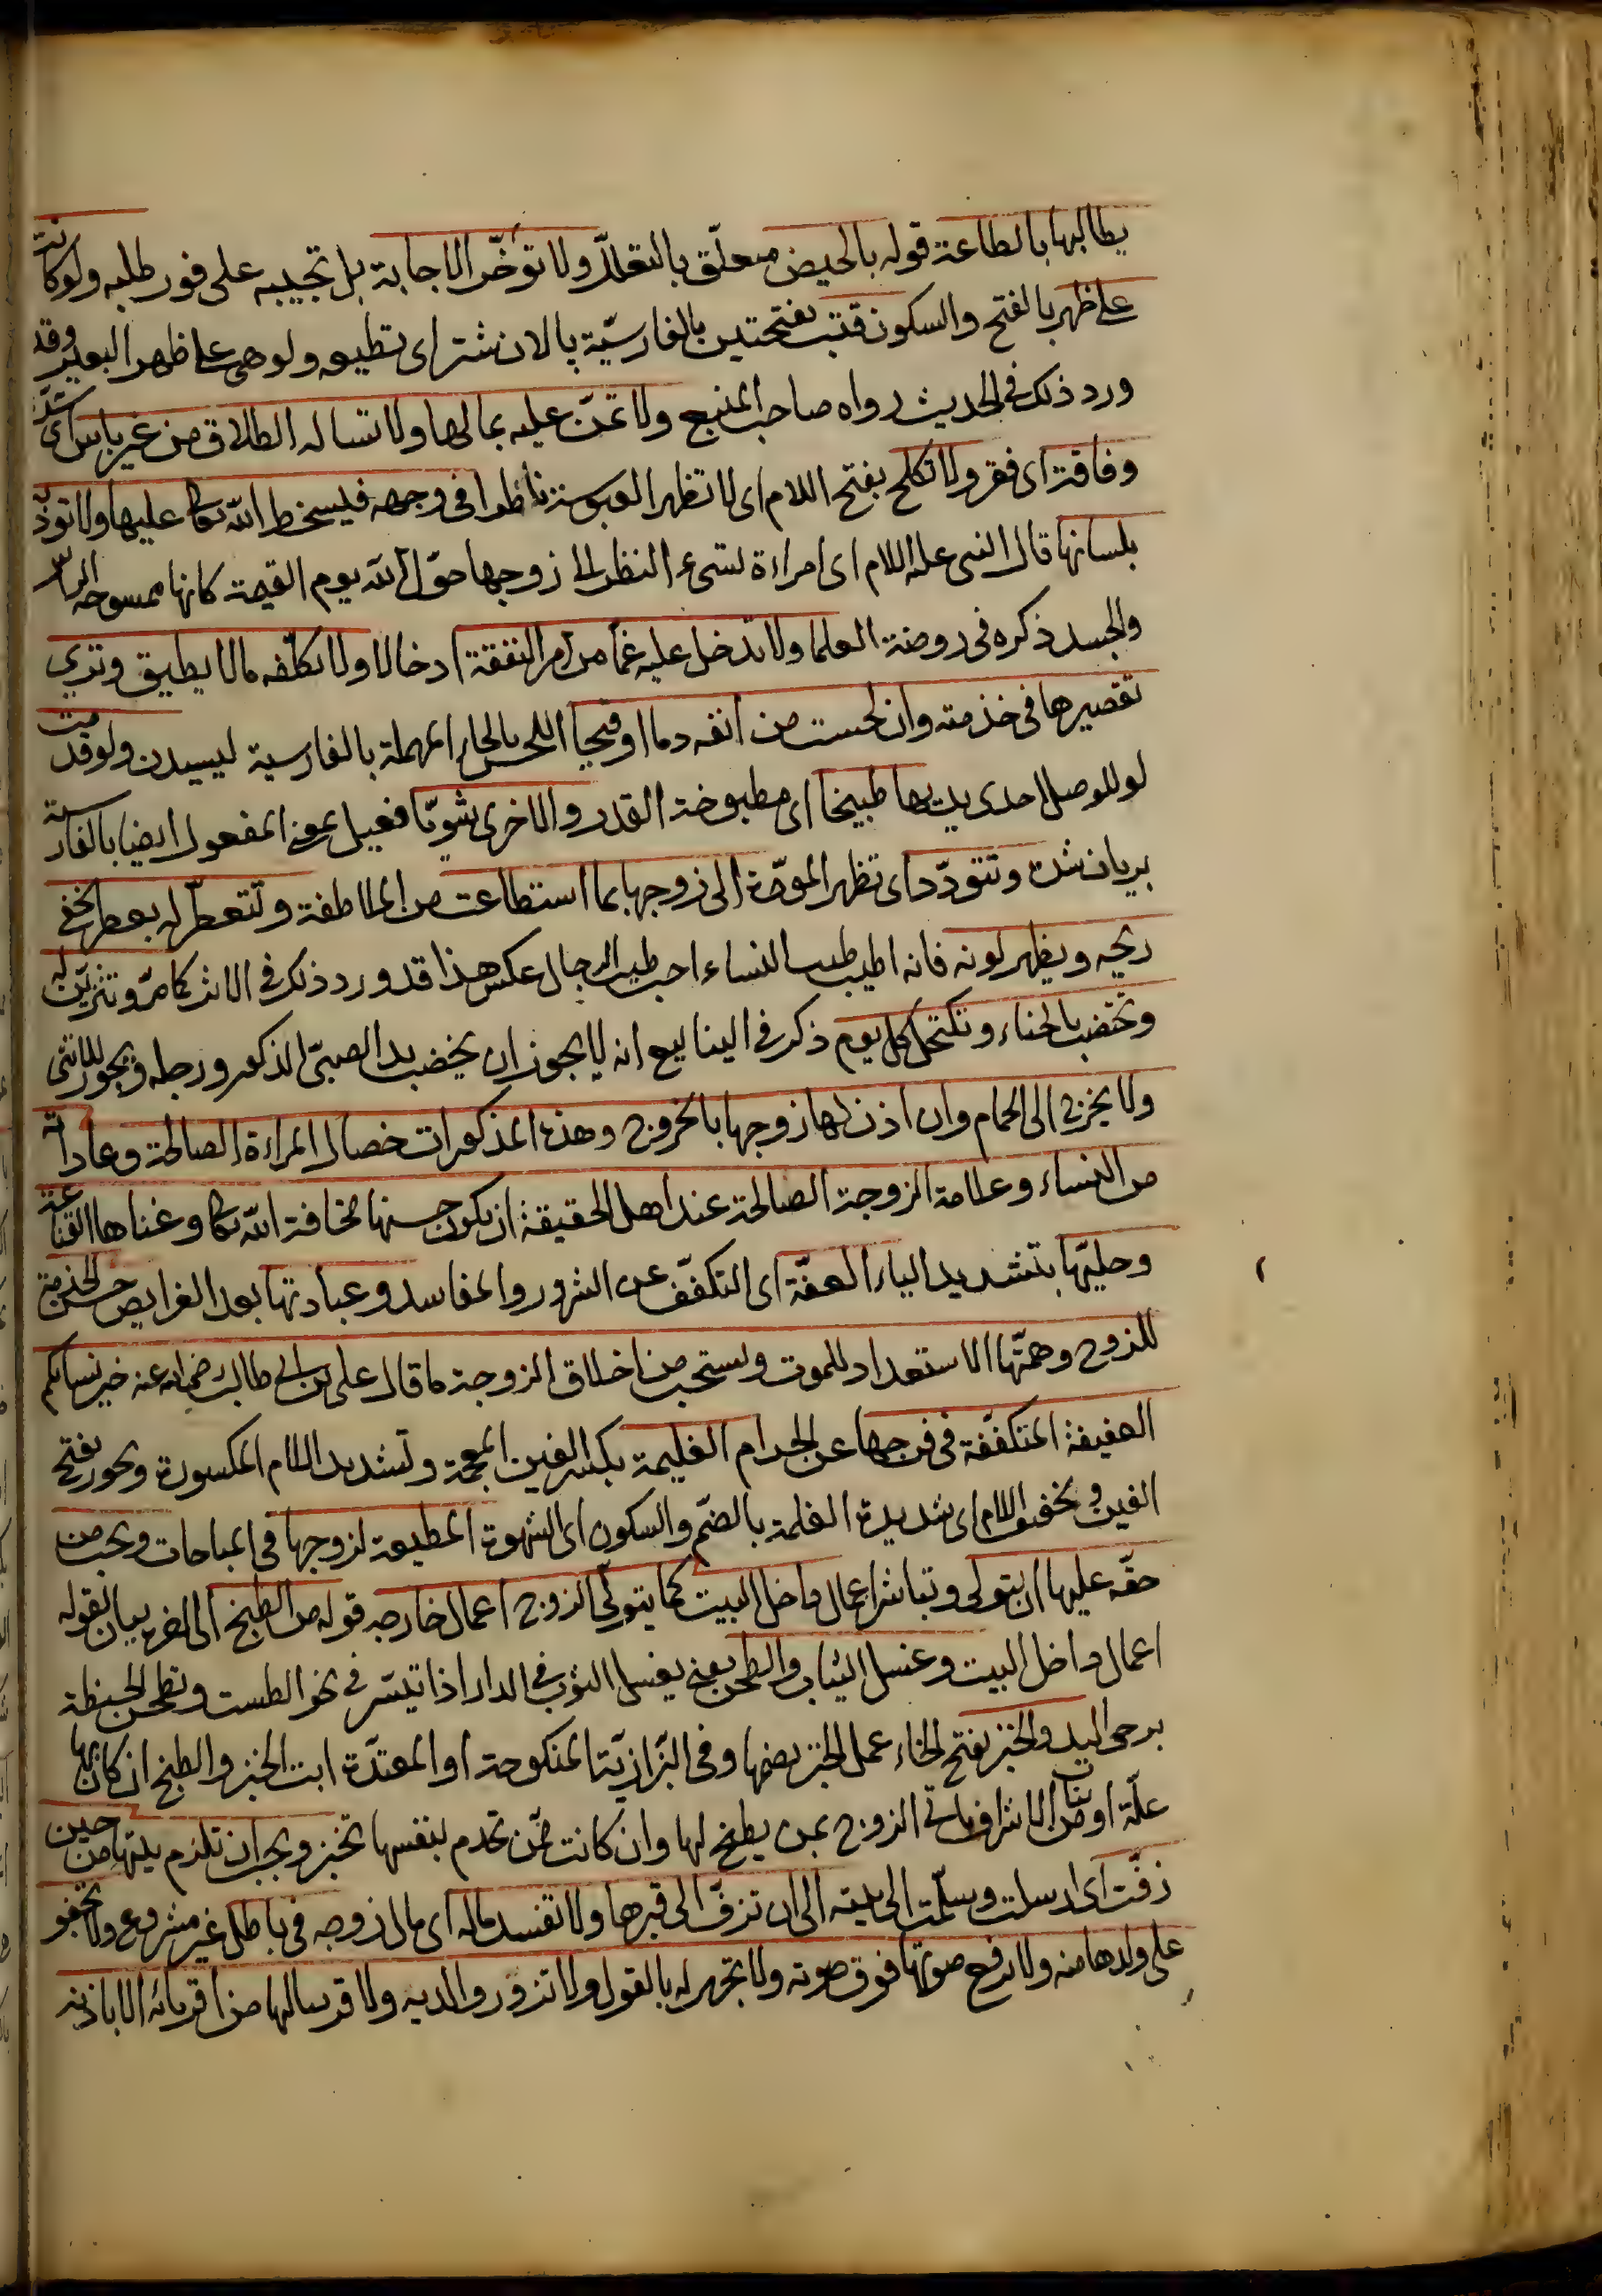 يطالبها بالطاعة قوله بالحيض متعلّق بالتعلّل ولا تؤخّر الاجابة بل تجيبه على فور طلبه ولو كانت
على ظهر بالفتح والسكون قتب بفتحتين بالفارسيّة پالان شتر اى تطيعه ولو هى على ظهر البعير وقد
ورد ذلك فى الحديث رواه صاحب المنبع ولا تمنّ عليه بمالها ولا تساله الطلاق من غير باس اى شدّة
وفاقة اى فقر ولا تكلح بفتح اللام اى لا تظهر العبوسة ناظرا فى وجهه فيسخط الله تعالى عليها ولا تؤذيه
بلسانها قال النبى عليه السلام اى امراءة تسىء النظر الى زوجها حوّل الله يوم القيمة كانها ممسوحة الراس
والجسد ذكره فى روضة العلما ولا تدخل عليه غمّا من امر النفقة ادخالا ولا تكلّفه مالا يطيق وترى
تقصيرها فى خدمته وان لحست من انفه دما او قيحا اللحس بالحاء المهملة بالفارسية ليسيدن ولو قدمت
لو للوصل احدى يديها طبيخا اى مطبوخة القدر والاخرى شويّا فعيل بمعنى المفعول ايضا بالفارسية
بريان شده وتتودّد اى تظهر المودّة الى زوجها بما استطاعت من الملاطفة وتتعطّر له بعطر يخفى
ريحه ويظهر لونه فانه اطيب طيب النساء احب طيب الرجال عكس هذا قد ورد ذلك فى الاثر كما مرّ وتتزيّن له
وتختضب بالحناء وتكتحل كل يوم ذكر فى الينابيع انه لا يجوز ان يخضب يد الصبىّ الذكر ورجله ويجوز للانثى
ولا يخرج الى الحمام وان اذن لها زوجها بالخروج وهذه المذكورات خصال المراءة الصالحة وعاداته
من النساء وعلامة الزوجة الصالحة عند اهل الحقيقة ان يكون حسنها مخافة الله تعالى وغناها القناعة
وحليّها بتشديد الياء العفّة اى التكفّف عن الشرور والمفاسد وعبادتها بعد الفرايض حسن الخدمة
للزوج وهمّتها الاستعداد للموت ويستحب من اخلاق الزوجة ما قال على بن ابى طالب رضى الله عنه خير نسايكم
العفيفة المتكفّفة فى فرجها عن الحرام الغليمة بكسر الغين المعجمة وتشديد اللام المكسورة ويجوز بفتح
الغين وتخفيف اللام اى شديدة الغلمة بالضمّ والسكون اى الشهوة المطيعة لزوجها فى المباحات ويجب من
حقّه عليها ان يتولى وتباشر اعمال داخل البيت كما يتولّى الزوج اعمال خارجه قوله من الطبخ الى اخره بيان لقوله
اعمال داخل البيت وغسل الثياب والطحن يعنى يغسل الثوب فى الدار اذا تيسّر فى نحو الطست وتطحن الحنطة
برحى اليد والخبز بفتح الخاء عمل الخبز بضمها وفى البزازيّة المنكوحة او المعتدّة ابت الخبز والطبخ ان كان بها
علّة او من بنات الاشراف ياتى الزوج بمن يطبخ لها وان كانت ممّن تخدم بنفسها تخبز ويجب ان تلزم بيتها من حين
زفّت اى ارسلت وسلّمت الى بيته الى ان تزفّ الى قبرها ولا تفسد ماله اى مال زوجه فى باطل غير مشروع ولا تجفو
على ولدها منه ولا ترفع صوتها فوق صوته ولا تجهر له بالقول ولا تزور والديه ولا قريبا لها من اقربائه الا باذنه